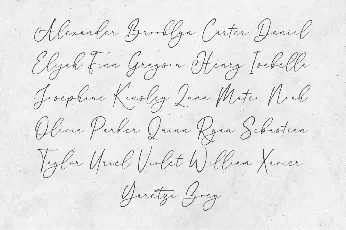 Alexander Brooklyn Carter Daniel
Elijah Finn Grayson Henry Isabella
Josephine Kinsley Luna Mateo Noah
Olivia Parker Quinn Ryan Sebastian
Taylor Uriel Violet William Xavier
Yaretzi Zoey